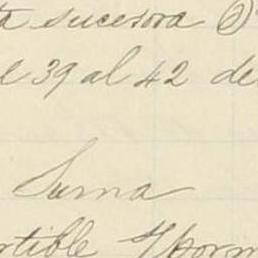 ta sucesora
el 39 al 42 de
Suma
rtible